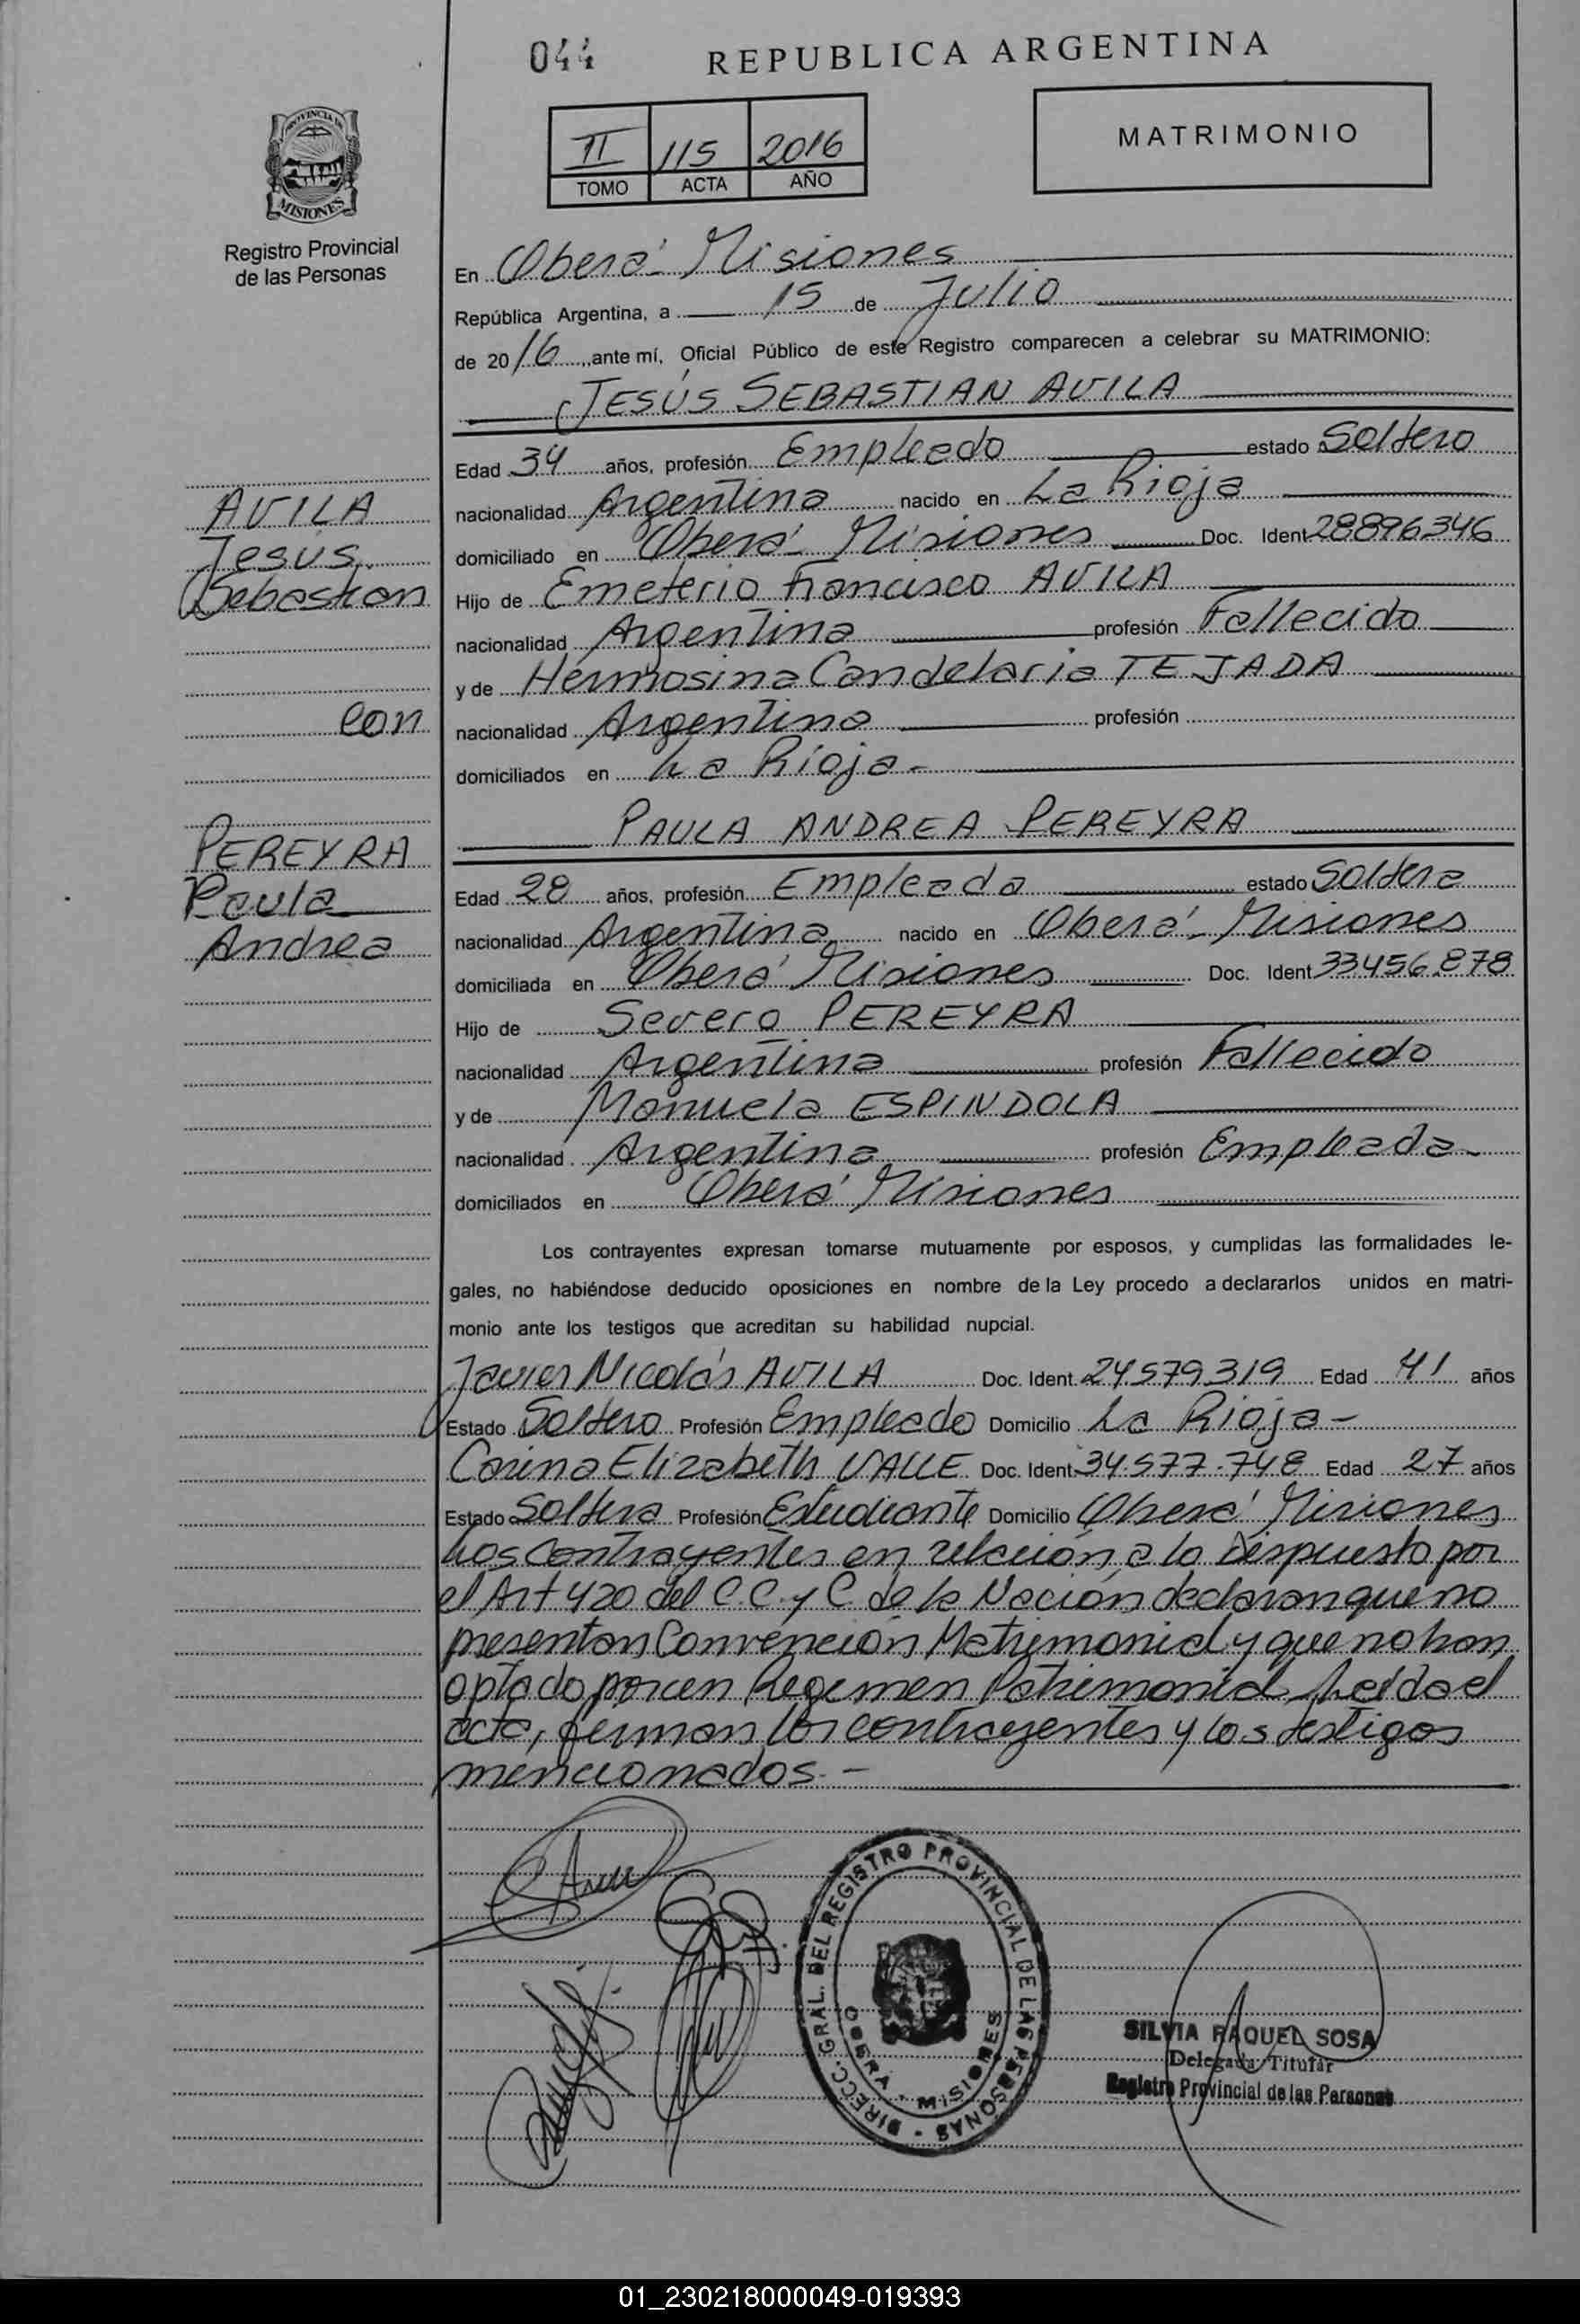 044
REPUBLICA ARGENTINA
II 115 2016
TOMO ACTA AÑO
MATRIMONIO
PROVINCIA DE
MISIONES
Registro Provincial
de las Personas
En Oberá - Misiones
República Argentina, a 15 de Julio
de 2016, ante mí, Oficial Público de este Registro comparecen a celebrar su MATRIMONIO:
JESÚS SEBASTIAN AVILA
Edad 34 años, profesión Empleado estado Soltero
nacionalidad Argentina nacido en La Rioja
domiciliado en Oberá - Misiones Doc. Ident 28896346
Hijo de Emeterio Francisco AVILA
nacionalidad Argentina profesión Fallecido
y de Hermosina Candelaria TEJADA
nacionalidad Argentina profesión
domiciliados en La Rioja -
AVILA
Jesús
Sebastian
con
PEREYRA
Paula
Andrea
PAULA ANDREA PEREYRA
Edad 28 años, profesión Empleada estado Soltera
nacionalidad Argentina nacido en Oberá - Misiones
domiciliada en Oberá Misiones Doc. Ident 33456878
Hijo de Severo PEREYRA
nacionalidad Argentina profesión Fallecido
y de Manuela ESPINDOLA
nacionalidad Argentina profesión Empleada -
domiciliados en Oberá Misiones
Los contrayentes expresan tomarse mutuamente por esposos, y cumplidas las formalidades le-
gales, no habiéndose deducido oposiciones en nombre de la Ley procedo a declararlos unidos en matri-
monio ante los testigos que acreditan su habilidad nupcial.
Javier Nicolás AVILA Doc. Ident. 24.579.319 Edad 41 años
Estado Soltero Profesión Empleado Domicilio La Rioja -
Carina Elizabeth VALLE Doc. Ident. 34.577.748 Edad 27 años
Estado Soltera Profesión Estudiante Domicilio Oberá Misiones
Los contrayentes en relación a lo Dispuesto por
el Art 420 del C.C. y C. de la Nación declaran que no
presentan Convención Matrimonial y que no han
optado por un Regimen Patrimonial. Leída el
acta, firman los contrayentes y los testigos
mencionados. -
DIRECC. GRAL. DEL REGISTRO PROVINCIAL DE LAS PERSONAS -
OBERÁ - MISIONES
SILVIA RAQUEL SOSA
Delegada Titular
Registro Provincial de las Personas
01_230218000049-019393